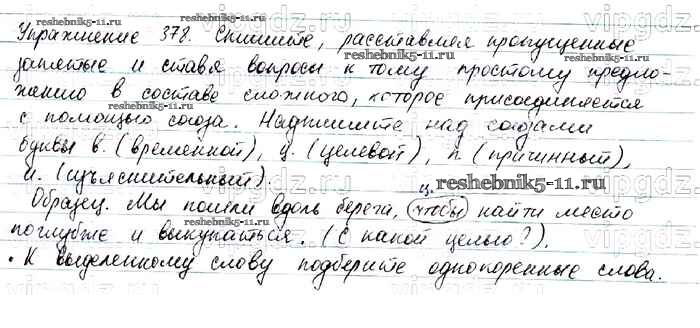 Упражнение 378. Спишите, расставляя пропущенные
запятые и ставя вопросы к тому простому предло-
жению в составе сложного, которое присоединяется
с помощью союза. Надпишите над союзами
буквы в. (временной), ц. (целевой), п (причинный),
и. (изъяснительный)
ц.
Образец. Мы пошли вдоль берега, чтобы найти место
поглубже и выкупаться. (С какой целью?).
• К выделенному слову подберите однокоренные слова.
reshebnik5-11.ru
reshebnik5-11.ru
reshebnik5-11.ru
reshebnik5-11.ru
reshebnik5-11.ru
vipgdz.ru